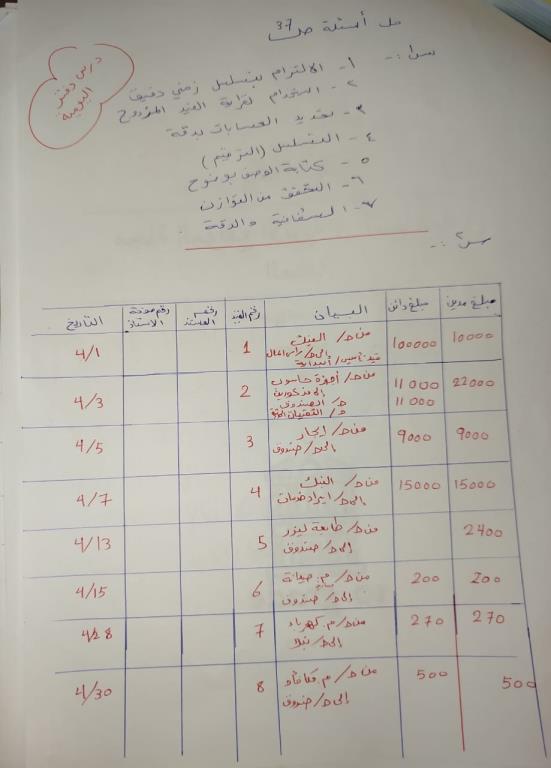 حل أسئلة ص 37
درس دفتر
اليومية
س1:- 1- الالتزام بتسلسل زمني دقيق
2- استخدام نظرية القيد المزدوج
3- تحديد الحسابات بدقة
4- التسلسل (الترقيم)
5- كتابة الوصف بوضوح
6- التحقق من التوازن
7- الشفافية والدقة.
س2:-
مبلغ مدين مبلغ دائن البيان رقم القيد رقم المستند رقم صفحة الاستاذ التاريخ
10000 100000 من ح/ البنك 1 4/1
الى ح/ رأس المال
22000 11000 من ح/ أجهزة حاسوب 2 4/3
11000 الى مذكورين
ح/ الصندوق
9000 9000 من ح/ إيجار 3 4/5
الى ح/ صندوق
15000 15000 من ح/ البنك 4 4/7
الى ح/ ايراد خدمات
2400 من ح/ طابعة ليزر 5 4/13
الى ح/ صندوق
200 200 من ح/ م. صيانة 6 4/15
الى ح/ صندوق
270 270 من ح/ م. كهرباء 7 4/28
الى ح/ بنك
500 500 من ح/ م. مكافأة 8 4/30
الى ح/ صندوق